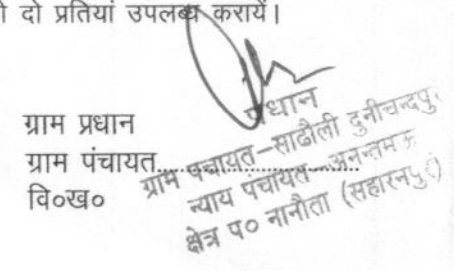 दो प्रतियां उपलब्ध करायें।
प्रधान
ग्राम प्रधान
ग्राम पंचायत....................
वि०ख०
ग्राम पंचायत–साढौली दुनीचन्दपु
न्याय पंचायत–अनन्तम
क्षेत्र प० नानौता (सहारनपुर)